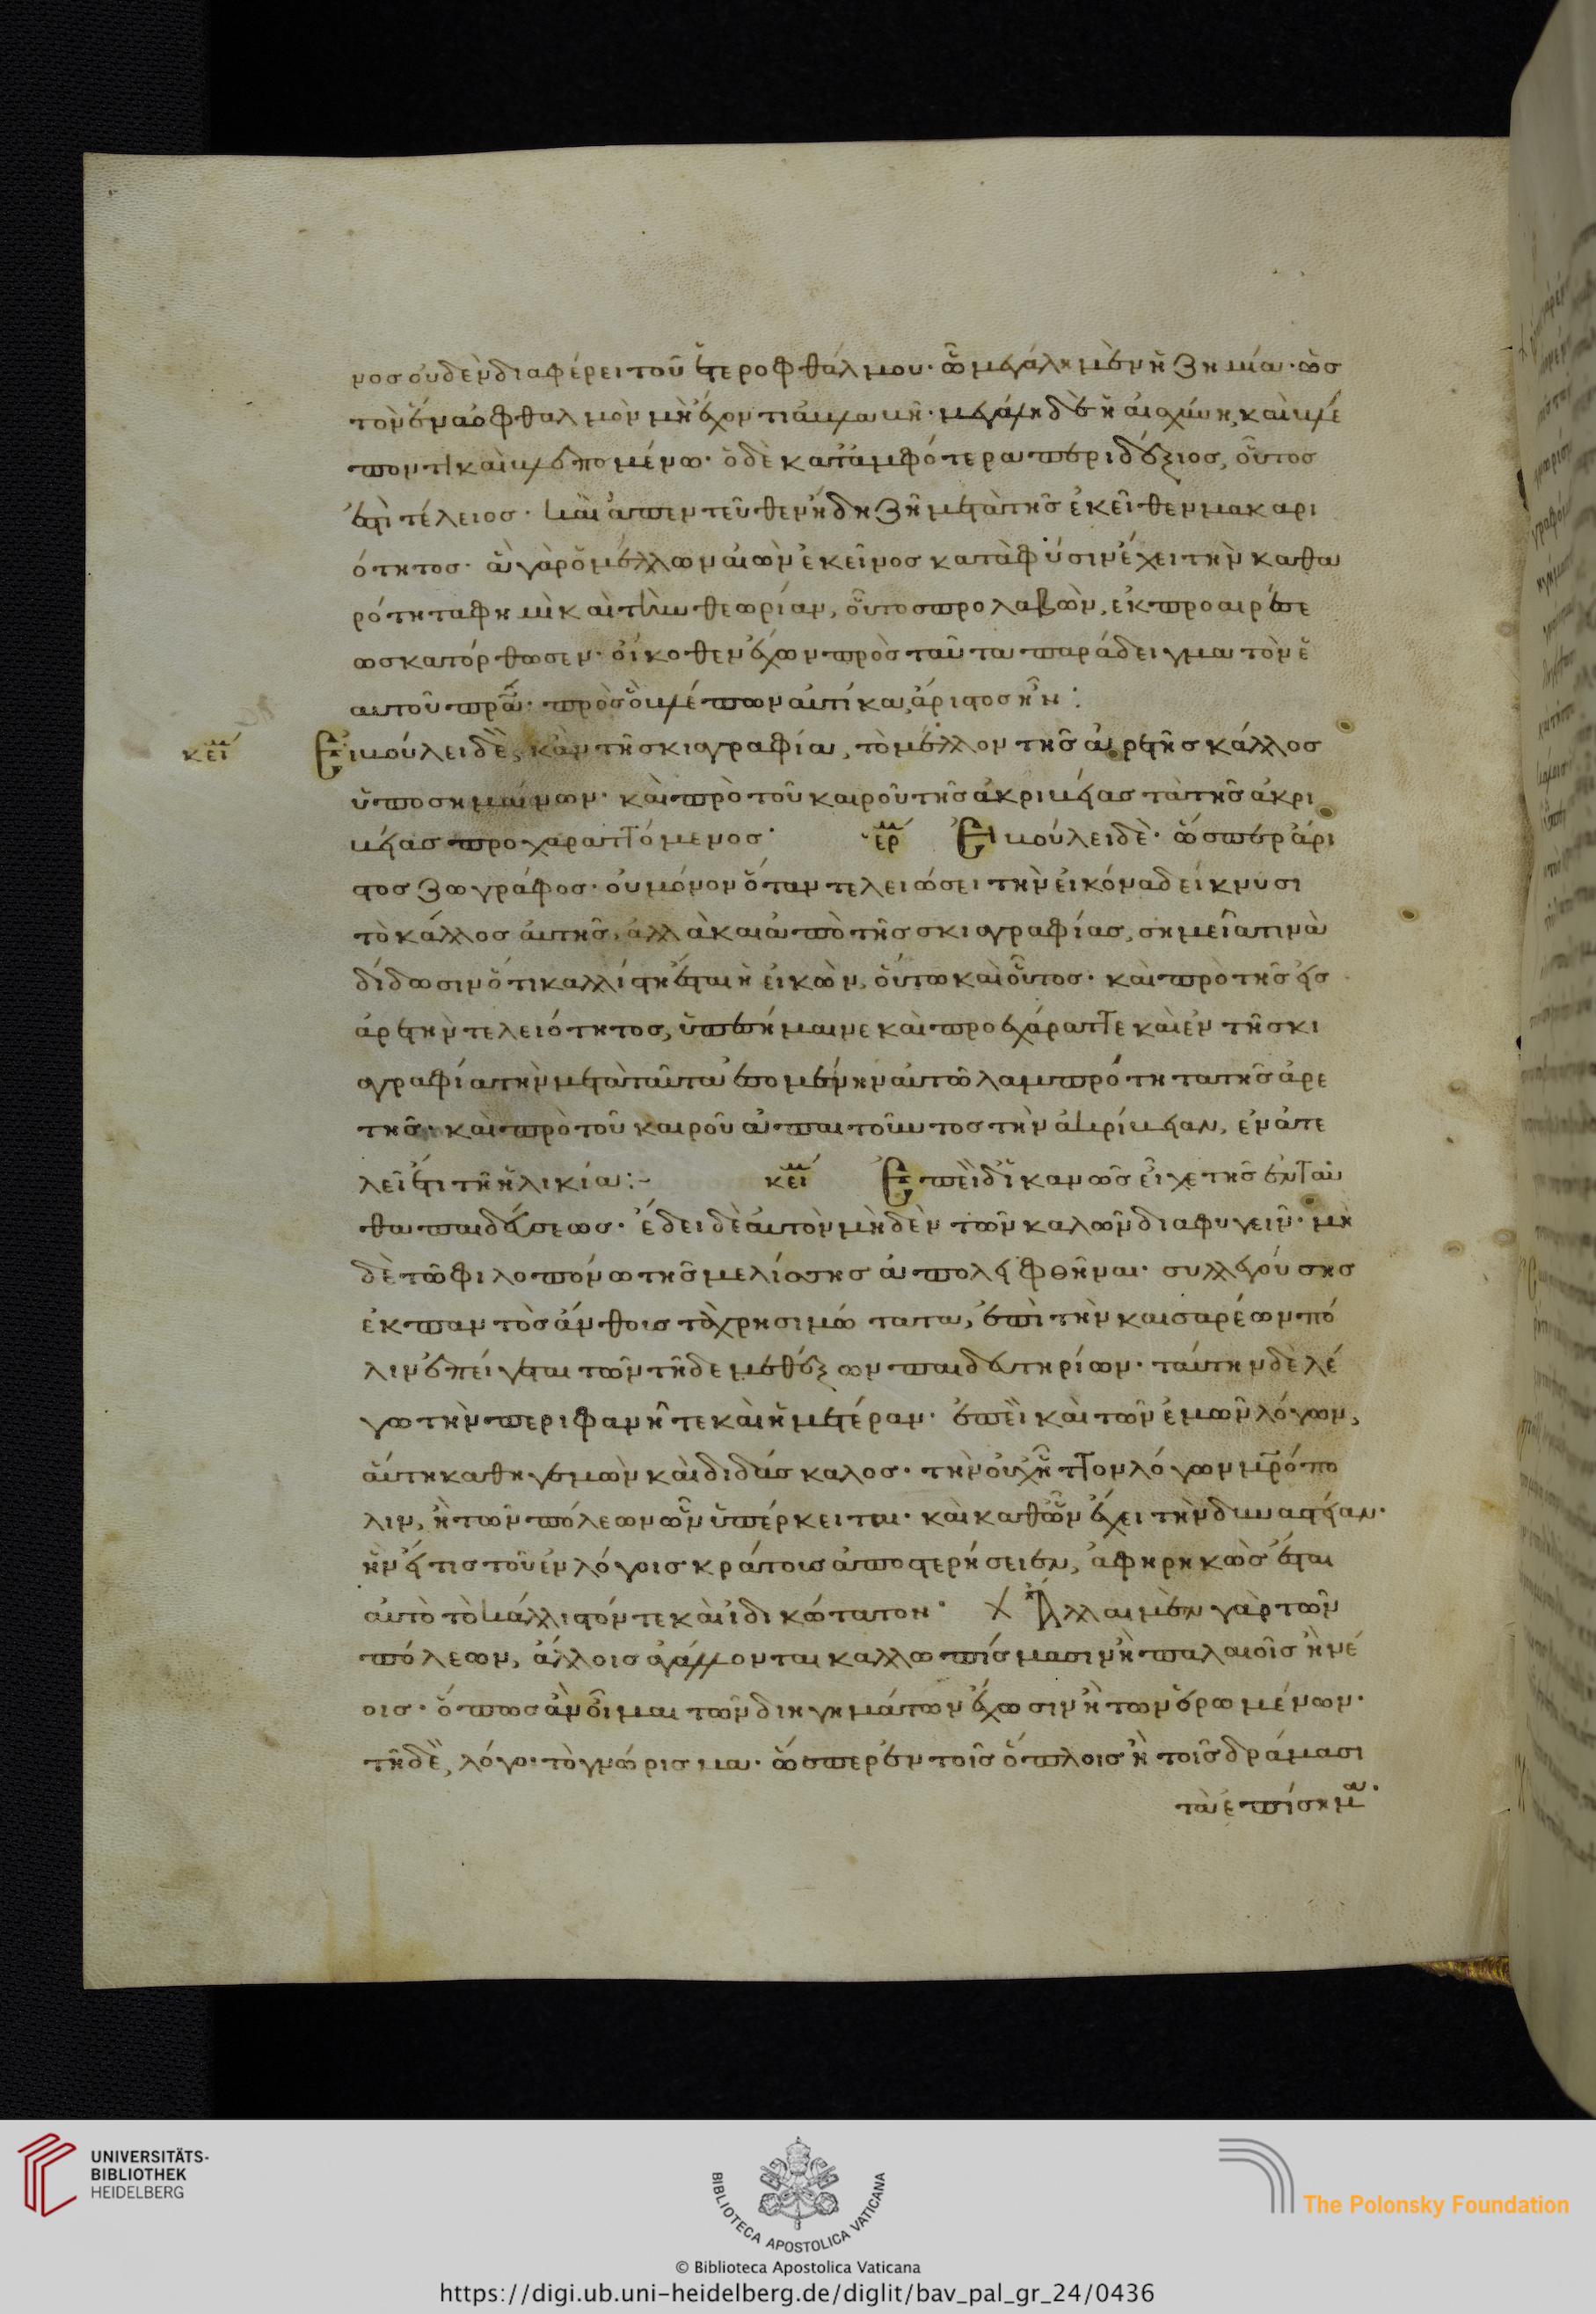 νοσ οὐδὲν διαφέρει τοῦ ἑτεροφθάλμου· ᾧ μεγάλη μὲν ἡ ζημία· ὡσ
τὸν ἕνα ὀφθαλμὸν μὴ ἔχοντι ἀκμὴ· μεγάλη δὲ ἡ αἰσχύνη, καὶ βλέ
ποντι καὶ βλεπομένω· ὁ δὲ κατ' ἀμφότερα περιδέξιος, οὗτοσ
ἐστὶ τέλειοσ· καὶ ἀπεντεῦθεν ἤδη ζῆ μετὰ τῆσ ἐκεῖθεν μακαρι
ότητοσ· ἃ γὰρ ὁ μέλλων αἰὼν ἐκεῖνοσ κατὰ φύσιν ἔχει τὴν καθα
ρότητα φημὶ καὶ τὴν θεωρίαν, οὗτοσ προλαβὼν, ἐκ προαιρέσε
ωσ κατόρθωσεν· οἴκοθεν ἔχων πρὸσ ταῦτα παράδειγμα τὸν ἑ
αυτοῦ πρα· πρὸσ ὃν βλέπων αὐτίκα, ἄριστοσ ἦν:
κεί Ἐβούλει δὲ, κἀν τῆ σκιογραφία, τὸ μέλλον τῆσ ἀρετῆσ κάλλοσ
ὑποσημαίνων· καὶ πρὸ τοῦ καιροῦ τῆσ ἀκριβείασ τὰ τῆσ ἀκρι
βείασ προχαραττόμενοσ· ἑρ Ἐβούλει δὲ· ὥσπερ ἄρι
στοσ ζωγράφοσ· οὐ μόνον ὅταν τελειώσει τὴν εἰκόνα δείκνυσι
τὸ κάλλοσ αὐτῆσ, ἀλλὰ καὶ ἀπὸ τῆσ σκιογραφίασ, σημεῖα τινὰ
δίδωσιν ὅτι καλλίστη ἔσται ἡ εἰκὼν, οὕτω καὶ οὗτοσ· καὶ πρὸ τῆσ εἰσ
ἀρετὴν τελειότητοσ, ὑπεσήμαινε καὶ προεχάραττε καὶ ἐν τῆ σκι
ογραφία τὴν μετὰ ταῦτα ἐσομένην αὐτῶ λαμπρότητα τῆσ ἀρε
τῆσ· καὶ πρὸ τοῦ καιροῦ ἀπαιτοῦντοσ τὴν ἀκρίβειαν, ἐν ἀτε
λεῖ ἔτι τῆ ἡλικία:- κεί Ἐπεὶ δ' ἱκανῶσ εἶχε τῆσ ἐνταῦ
θα παιδεύσεωσ· ἔδει δὲ αὐτὸν μηδὲν τῶν καλῶν διαφυγεῖν· μη
δὲ τῶ φιλοπόνω τῆσ μελίσσησ ἀπολειφθῆναι· συλλεγούσησ
ἐκ παντὸσ ἄνθουσ τὰ χρησιμώτατα, ἐπὶ τὴν καισαρέων πό
λιν ἐπείγεται τῶν τῆδε μεθέξων παιδευτηρίων· ταύτην δὲ λέ
γω τὴν περιφανῆ τε καὶ ἡμετέραν· ἐπεὶ καὶ τῶν ἐμῶν λόγων,
αὕτη καθηγεμὼν καὶ διδάσκαλοσ· τὴν οὐχ ἧττον λόγων μρόπο
λιν, ἢ τῶν πόλεων ὧν ὑπέρκειται· καὶ καθ' ὧν ἔχει τὴν δυναστείαν·
ἣν εἴ τισ τοῦ ἐν λόγοισ κράτουσ ἀποστερήσειεν, ἀφηρηκὼσ ἔσται
αὐτὸ τὸ κάλλιστόν τε καὶ ἰδικώτατον· Χ Ἄλλαι μὲν γὰρ τῶν
πόλεων, ἄλλοισ ἀγάλλονται καλλωπίσμασιν ἢ παλαιοῖσ ἢ νέ
οισ· ὅπωσ ἂν οἶμαι τῶν διηγημάτων ἔχωσιν ἢ τῶν ὁρωμένων·
τῆδε, λόγοι τὸ γνώρισμα· ὥσπερ ἐν τοῖσ ὅπλοισ ἢ τοῖσ δράμασι
τὰ ἐπίσημα·
UNIVERSITÄTS-
BIBLIOTHEK
HEIDELBERG
BIBLIOTECA APOSTOLICA VATICANA
The Polonsky Foundation
© Biblioteca Apostolica Vaticana
https://digi.ub.uni-heidelberg.de/diglit/bav_pal_gr_24/0436